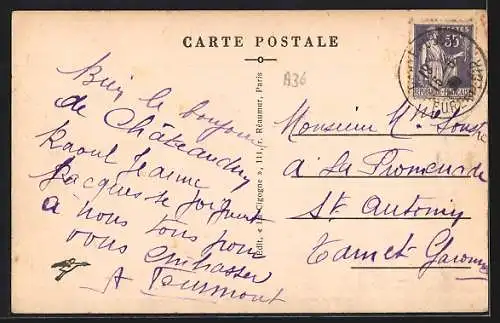 CARTE POSTALE
A36
Bien le bonjour
de Châteaudun
Raoul Jeanne
Jacques se joignent
à nous tous pour
vous embrasser
A
Edit. « La Cigogne », 111, r. Réaumur, Paris
POSTES
35
REPUBLIQUE FRANÇAISE
Monsieur M.
à La Promenade
St Antonin
Tarn et Garonne